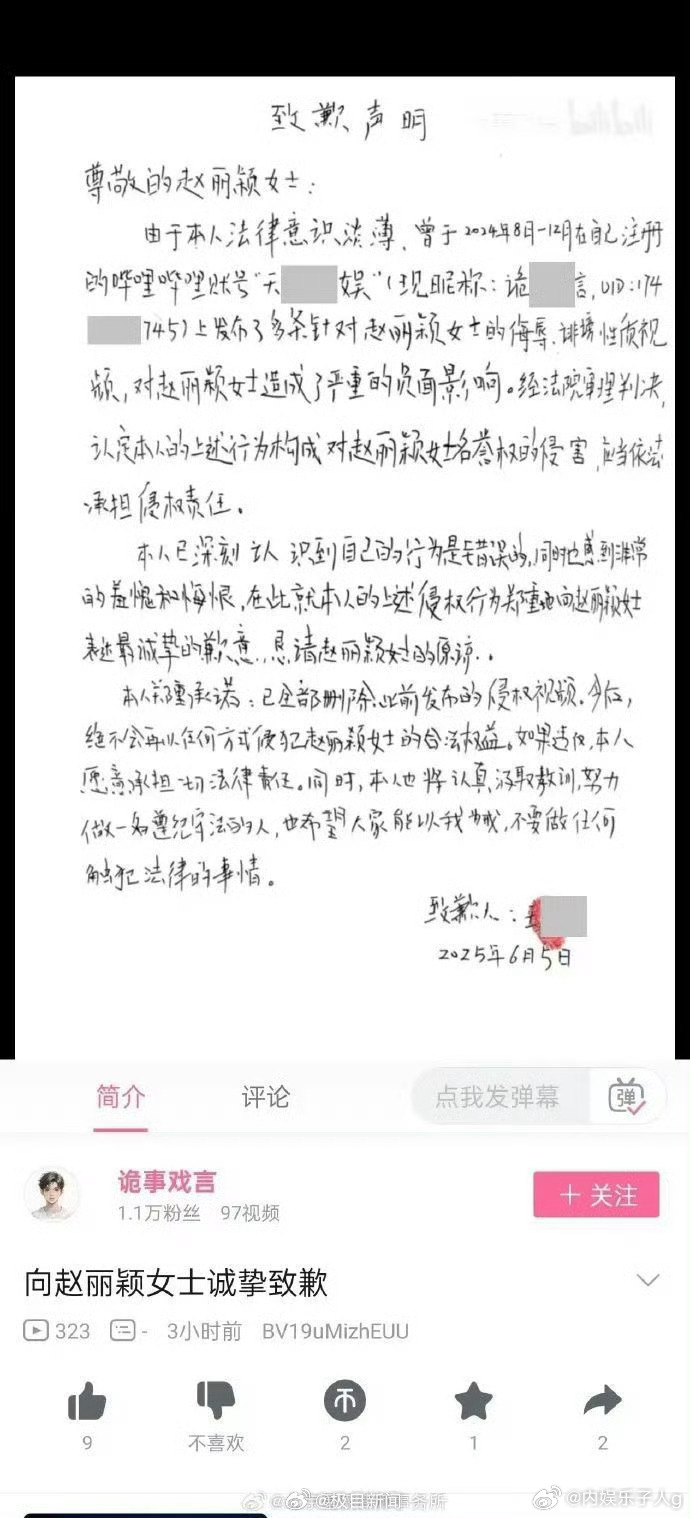 致歉声明
bilibili
尊敬的赵丽颖女士：
由于本人法律意识淡薄，曾于2024年8月-12月在自己注册
的哔哩哔哩账号"天 娱"（现昵称：诡 言，UID：174
745）上发布了多条针对赵丽颖女士的侮辱、诽谤性质视
频，对赵丽颖女士造成了严重的负面影响。经法院审理判决，
认定本人的上述行为构成对赵丽颖女士名誉权的侵害，应当依法
承担侵权责任。
本人已深刻认识到自己的行为是错误的，同时也感到非常
的羞愧和悔恨，在此就本人的上述侵权行为郑重地向赵丽颖女士
表达最诚挚的歉意，恳请赵丽颖女士的原谅。
本人郑重承诺：已全部删除此前发布的侵权视频。今后，
绝不会再以任何方式侵犯赵丽颖女士的合法权益。如果违反，本人
愿意承担一切法律责任。同时，本人也将认真汲取教训，努力
做一名遵纪守法的人，也希望大家能以我为戒，不要做任何
触犯法律的事情。
致歉人：
2025年6月5日
简介 评论 点我发弹幕 弹
诡事戏言
1.1万粉丝 97视频
+ 关注
向赵丽颖女士诚挚致歉
323 - 3小时前 BV19uMizhEUU
9 不喜欢 2 1 2
@极目新闻 事务所 @内娱乐子人g